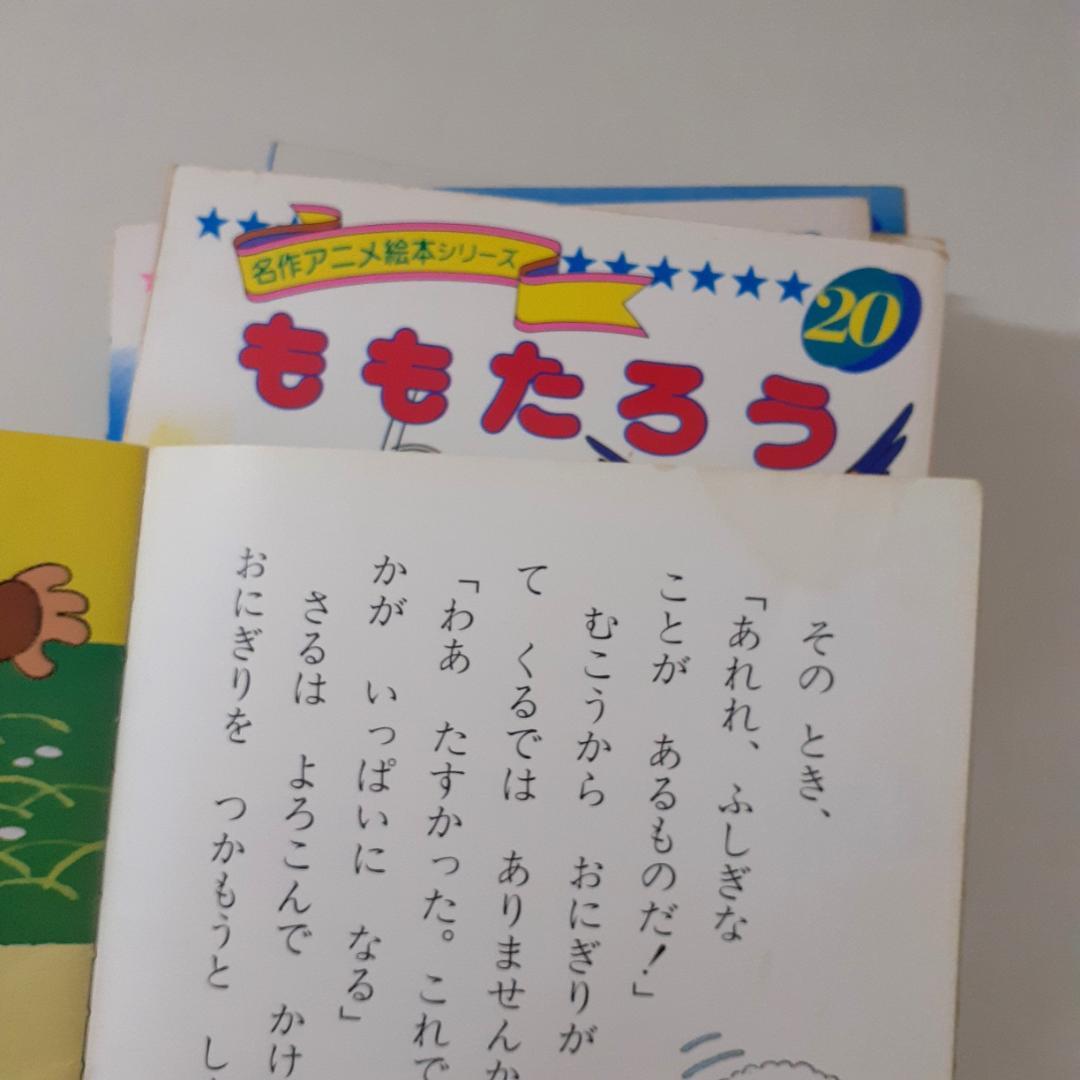 名作アニメ絵本シリーズ
20
ももたろう
その とき、
「あれれ、 ふしぎな
ことが あるものだ!」
むこうから おにぎりが
て くるでは ありませんか
「わあ たすかった。 これで
かが いっぱいに なる」
さるは よろこんで かけ
おにぎりを つかもうと し